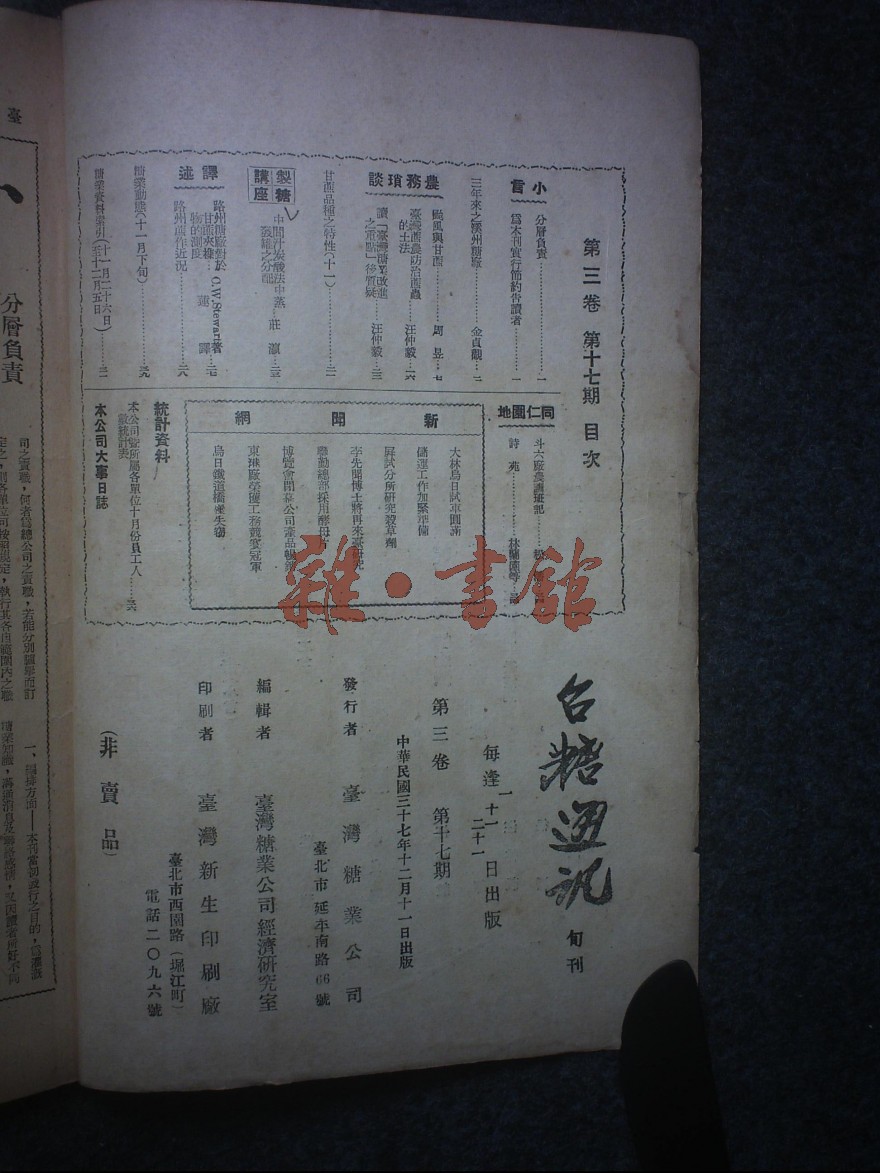 第三卷 第十七期 目次
小言
分層負責……一
為本刊實行節約告讀者……一
三年來之溪州糖廠……金貞觀…二
農務瑣談
颱風與甘蔗……周 昱…七
臺灣蔗農防治蔗蟲的土法……汪仲毅…一六
讀「臺灣糖業改進之重點」後質疑……汪仲毅…三
甘蔗品種之特性(十一)
製糖講座
中間汁炭酸法中蒸發罐之分配……莊 瀛
譯述
路州糖廠對於甘蔗夾雜物的測度 C.W.Stewart著 譯
路州蔗作近況
糖業動態(十一月下旬)
糖業資料索引(十一月二十六日至十二月五日)
同仁園地
斗六廠農講班記
詩苑
新聞網
大林烏日試車圓滿
儲運工作加緊準備
屏試分所研究殺草劑
李先聞博士將再來臺研究
聯勤總部採用酵母片
博覽會開幕公司產品
東港廠榮獲工務競賽冠軍
烏日鐵道橋
統計資料
本公司暨所屬各單位十月份員工人數統計表
本公司大事日誌
台糖通訊 旬刊
每逢一 十一 二十一日出版
第三卷 第十七期
中華民國三十七年十二月十一日出版
發行者 臺灣糖業公司
臺北市延平南路66號
編輯者 臺灣糖業公司經濟研究室
印刷者 臺灣新生印刷廠
臺北市西園路(堀江町)
電話二〇九六號
(非賣品)
雜·書館
臺
分層負責
司之責職,何者為總公司之責職,若能分別
一、編排方面——本刊當初發行之目的,為灌輸